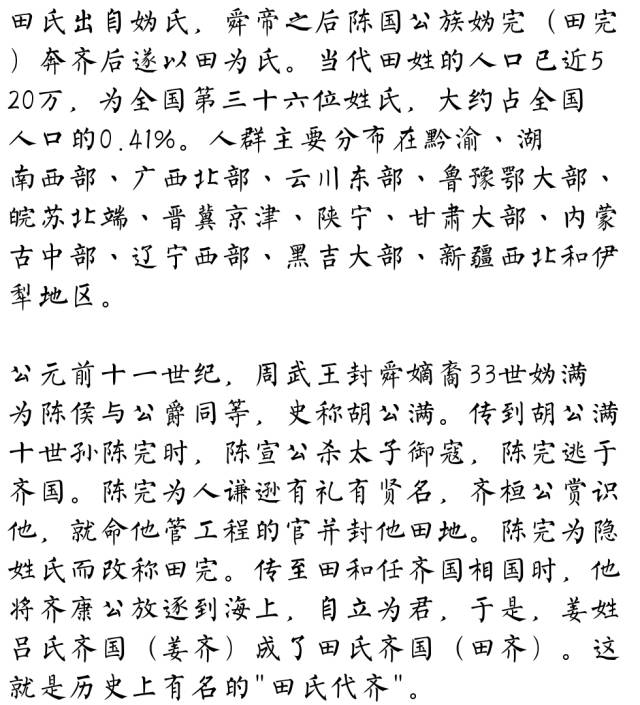 田氏出自妫氏，舜帝之后陈国公族妫完（田完
）奔齐后遂以田为氏。当代田姓的人口已近5
20万，为全国第三十六位姓氏，大约占全国
人口的0.41%。人群主要分布在黔渝、湖
南西部、广西北部、云川东部、鲁豫鄂大部、
皖苏北端、晋冀京津、陕宁、甘肃大部、内蒙
古中部、辽宁西部、黑吉大部、新疆西北和伊
犁地区。
公元前十一世纪，周武王封舜嫡裔33世妫满
为陈侯与公爵同等，史称胡公满。传到胡公满
十世孙陈完时，陈宣公杀太子御寇，陈完逃于
齐国。陈完为人谦逊有礼有贤名，齐桓公赏识
他，就命他管工程的官并封他田地。陈完为隐
姓氏而改称田完。传至田和任齐国相国时，他
将齐康公放逐到海上，自立为君，于是，姜姓
吕氏齐国（姜齐）成了田氏齐国（田齐）。这
就是历史上有名的"田氏代齐"。